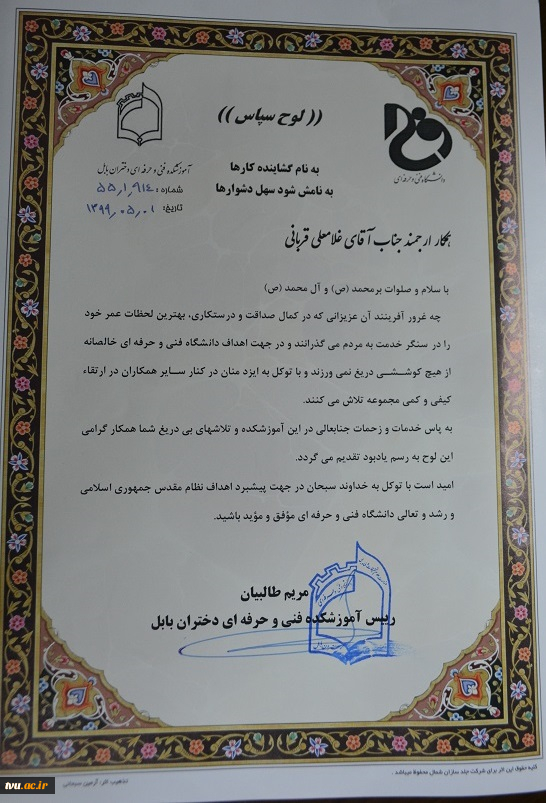 (( لوح سپاس ))
دانشگاه فنی و حرفه ای
آموزشکده فنی و حرفه ای دختران بابل
شماره: ۵۵,۱,۹۱۴
تاریخ: ۱۳۹۹,۰۵,۰۱
به نام گشاینده کارها
به نامش شود سهل دشوارها
همکار ارجمند جناب آقای غلامعلی قربانی
با سلام و صلوات برمحمد (ص) و آل محمد (ص)
چه غرور آفرینند آن عزیزانی که در کمال صداقت و درستکاری، بهترین لحظات عمر خود
را در سنگر خدمت به مردم می گذرانند و در جهت اهداف دانشگاه فنی و حرفه ای خالصانه
از هیچ کوششـی دریغ نمی ورزند و با توکل به ایزد منان در کنار سـایر همکاران در ارتقاء
کیفی و کمی مجموعه تلاش می کنند.
به پاس خدمات و زحمات جنابعالی در این آموزشکده و تلاشهای بی دریغ شما همکار گرامی
این لوح به رسم یادبود تقدیم می گردد.
امید است با توکل به خداوند سبحان در جهت پیشبرد اهداف نظام مقدس جمهوری اسلامی
و رشد و تعالی دانشگاه فنی و حرفه ای مؤفق و مؤید باشید.
مریم طالبیان
رییس آموزشکده فنی و حرفه ای دختران بابل
کلیه حقوق این اثر برای شرکت جلد سازان شمال محفوظ میباشد.
تذهیب اثر: آرمین سبحانی
tvu.ac.ir